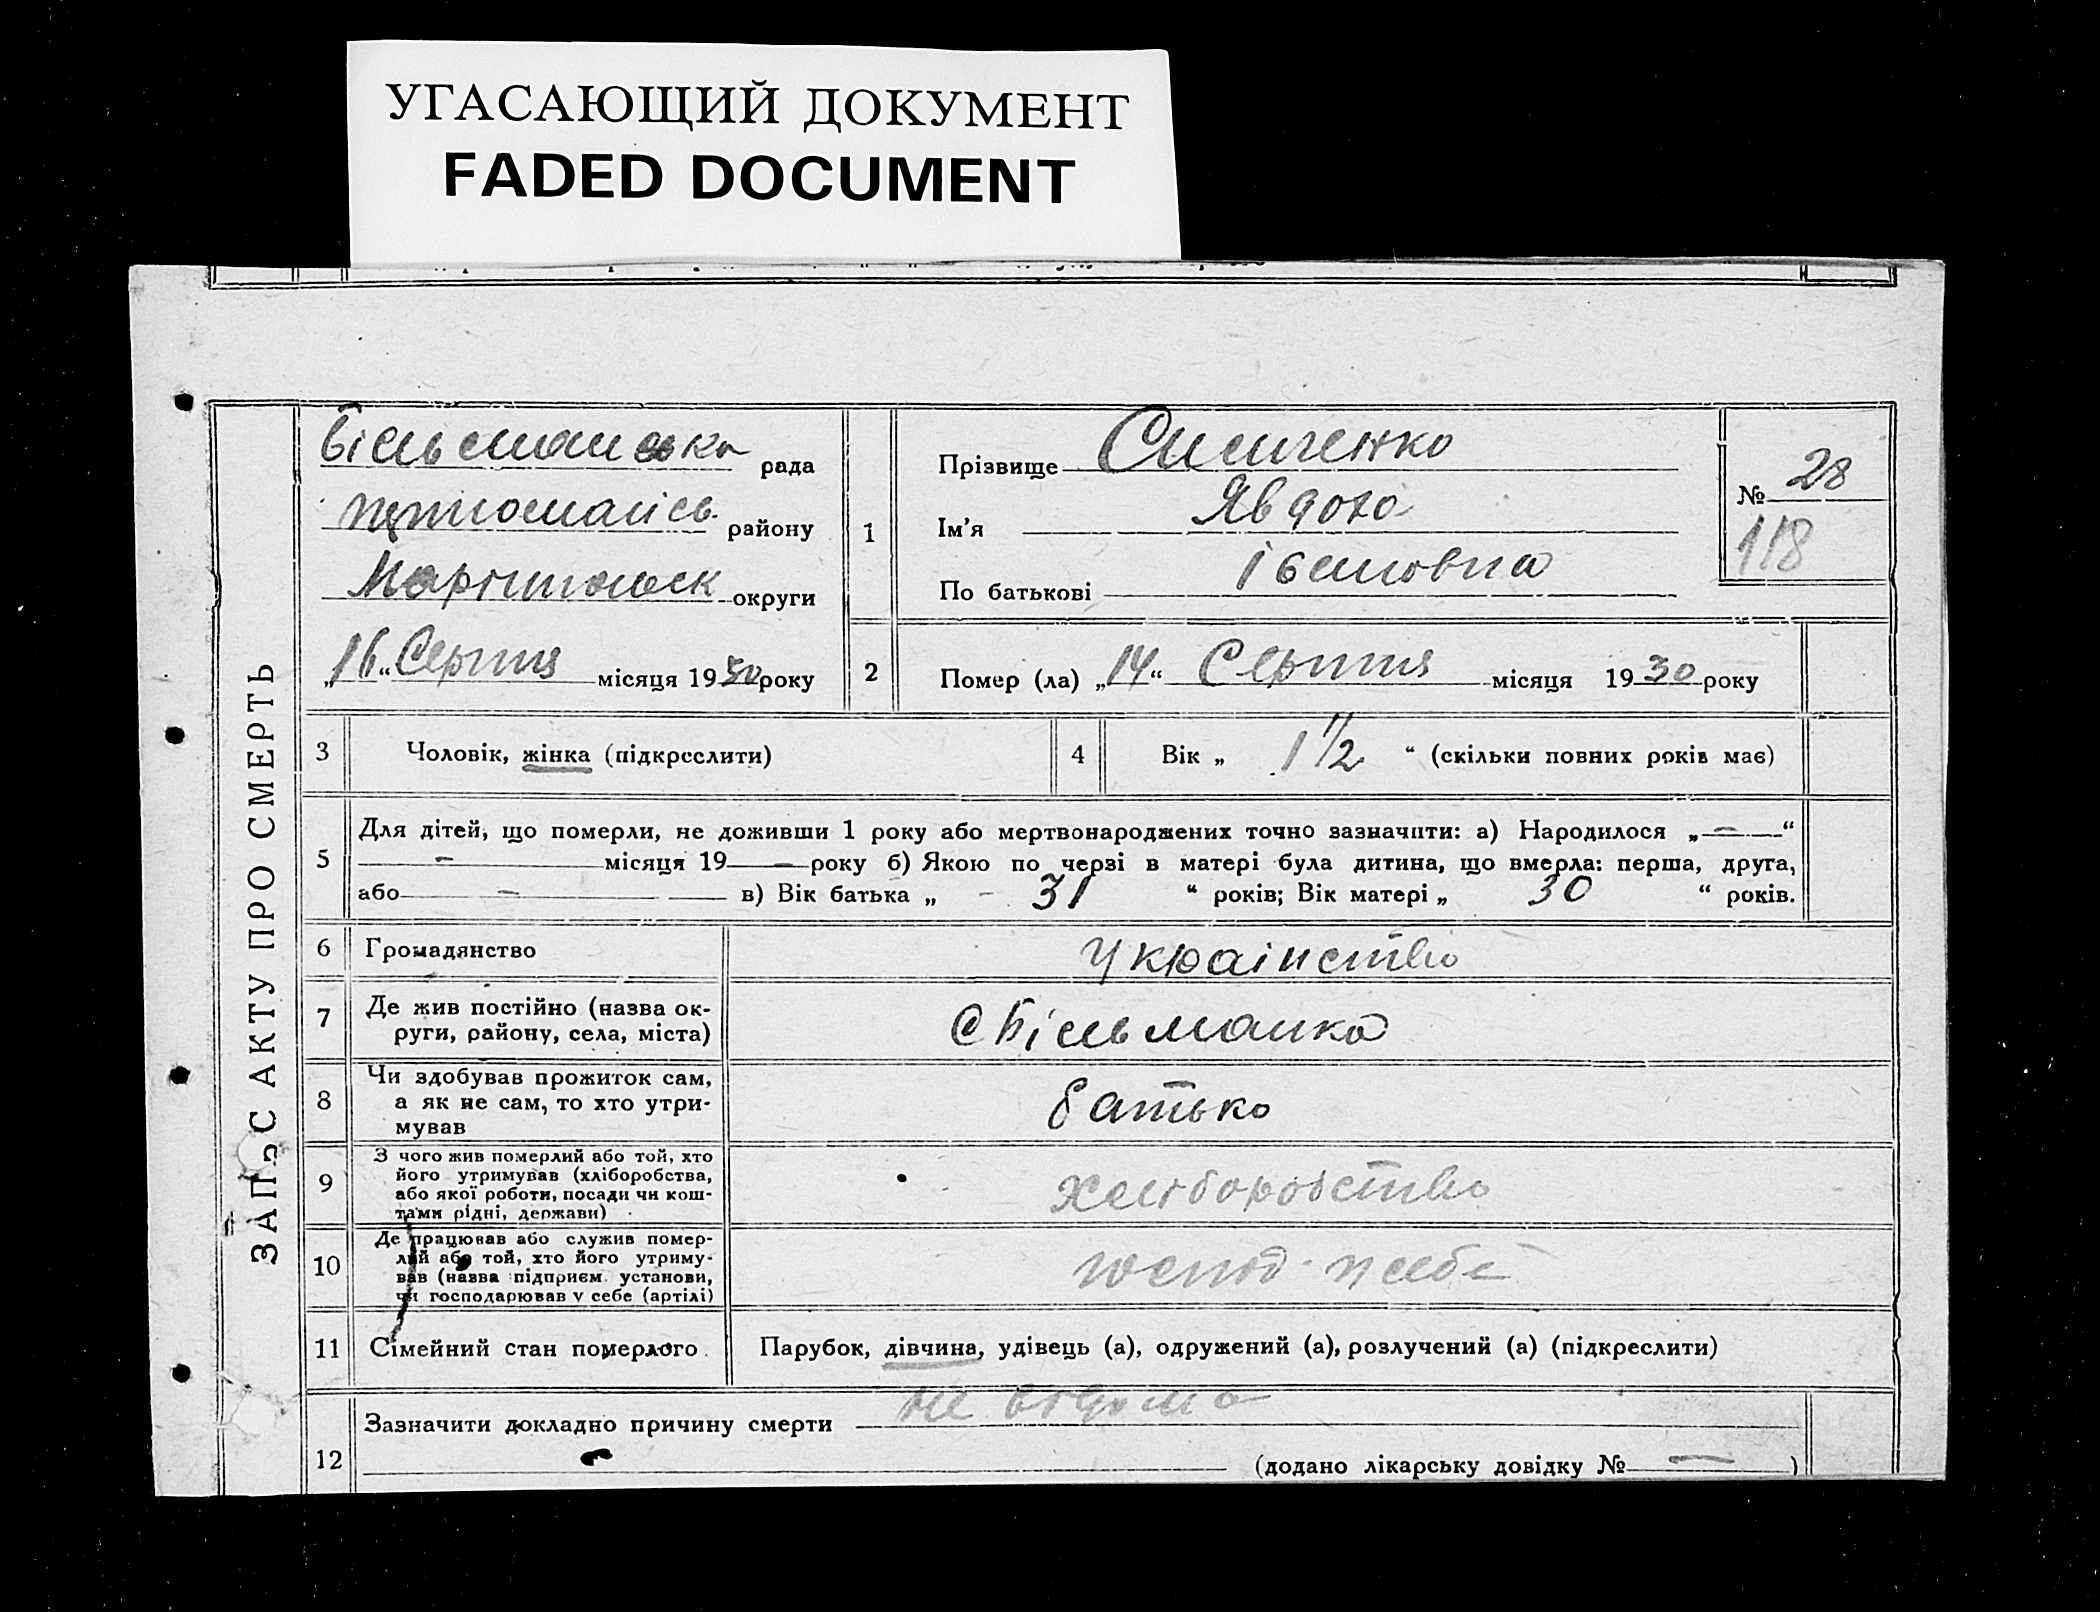 УГАСАЮЩИЙ ДОКУМЕНТ
FADED DOCUMENT
ЗАПИС АКТУ ПРО СМЕРТЬ
Більманська рада
району
округи
„16“ Серпня місяця 1930 року
1
Прізвище
Ім'я Явдоха
По батькові Івановна
№ 28
118
2
Помер (ла) „14“ Серпня місяця 1930 року
3
Чоловік, жінка (підкреслити)
4
Вік „ 1 1/2 “ (скільки повних років має)
5
Для дітей, що померли, не доживши 1 року або мертвонароджених точно зазначити: а) Народилося „ — “
— місяця 19 — року б) Якою по черзі в матері була дитина, що вмерла: перша, друга,
або — в) Вік батька „ - 31 “ років; Вік матері „ 30 “ років.
6
Громадянство
Украінство
7
Де жив постійно (назва ок-
руги, району, села, міста)
с Більманка
8
Чи здобував прожиток сам,
а як не сам, то хто утри-
мував
батько
9
З чого жив померлий або той, хто
його утримував (хліборобства,
або якої роботи, посади чи кош-
тами рідні, держави)
хліборобство
10
Де працював або служив помер-
лий або той, хто його утриму-
вав (назва підприєм. установи,
чи господарював у себе (артілі)
11
Сімейний стан померлого
Парубок, дівчина, удівець (а), одружений (а), розлучений (а) (підкреслити)
12
Зазначити докладно причину смерти не відома
(додано лікарську довідку № — )